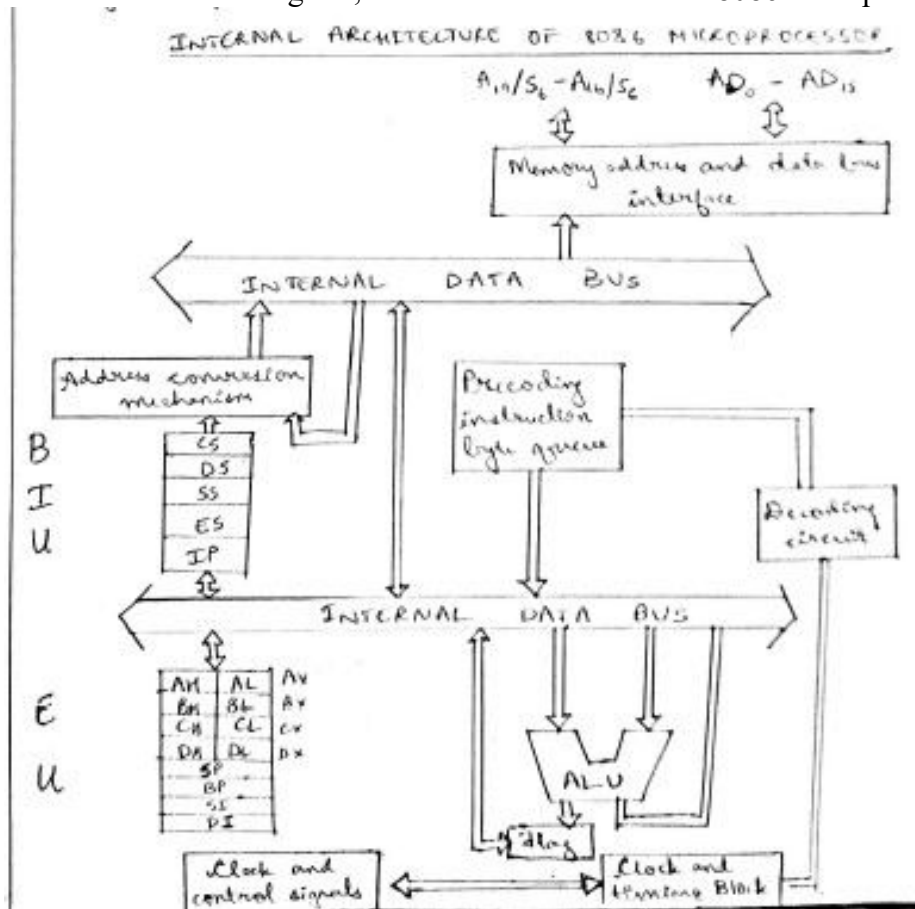 INTERNAL ARCHITECTURE OF 8086 MICROPROCESSOR
A19/S6 - A16/S6 AD0 - AD15
Memory address and data bus
interface
INTERNAL DATA BUS
Address conversion
mechanism
Precoding
instruction
byte queue
B
I
U
CS
DS
SS
ES
IP
Decoding
circuit
INTERNAL DATA BUS
E
U
AH AL AX
BH BL BX
CH CL CX
DH DL DX
SP
BP
SI
DI
ALU
flag
Clock and
control signals
Clock and
timing Block